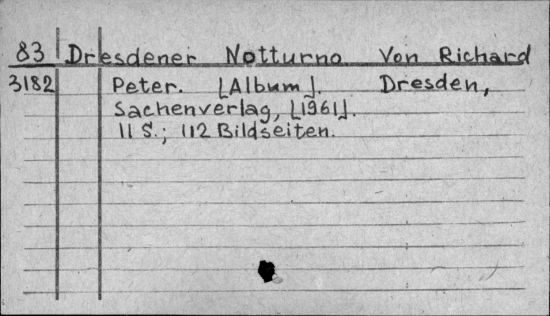 83 Dresdener Notturno Von Richard
3182 Peter. [Album]. Dresden,
Sachenverlag, [1961].
11 S.; 112 Bildseiten.